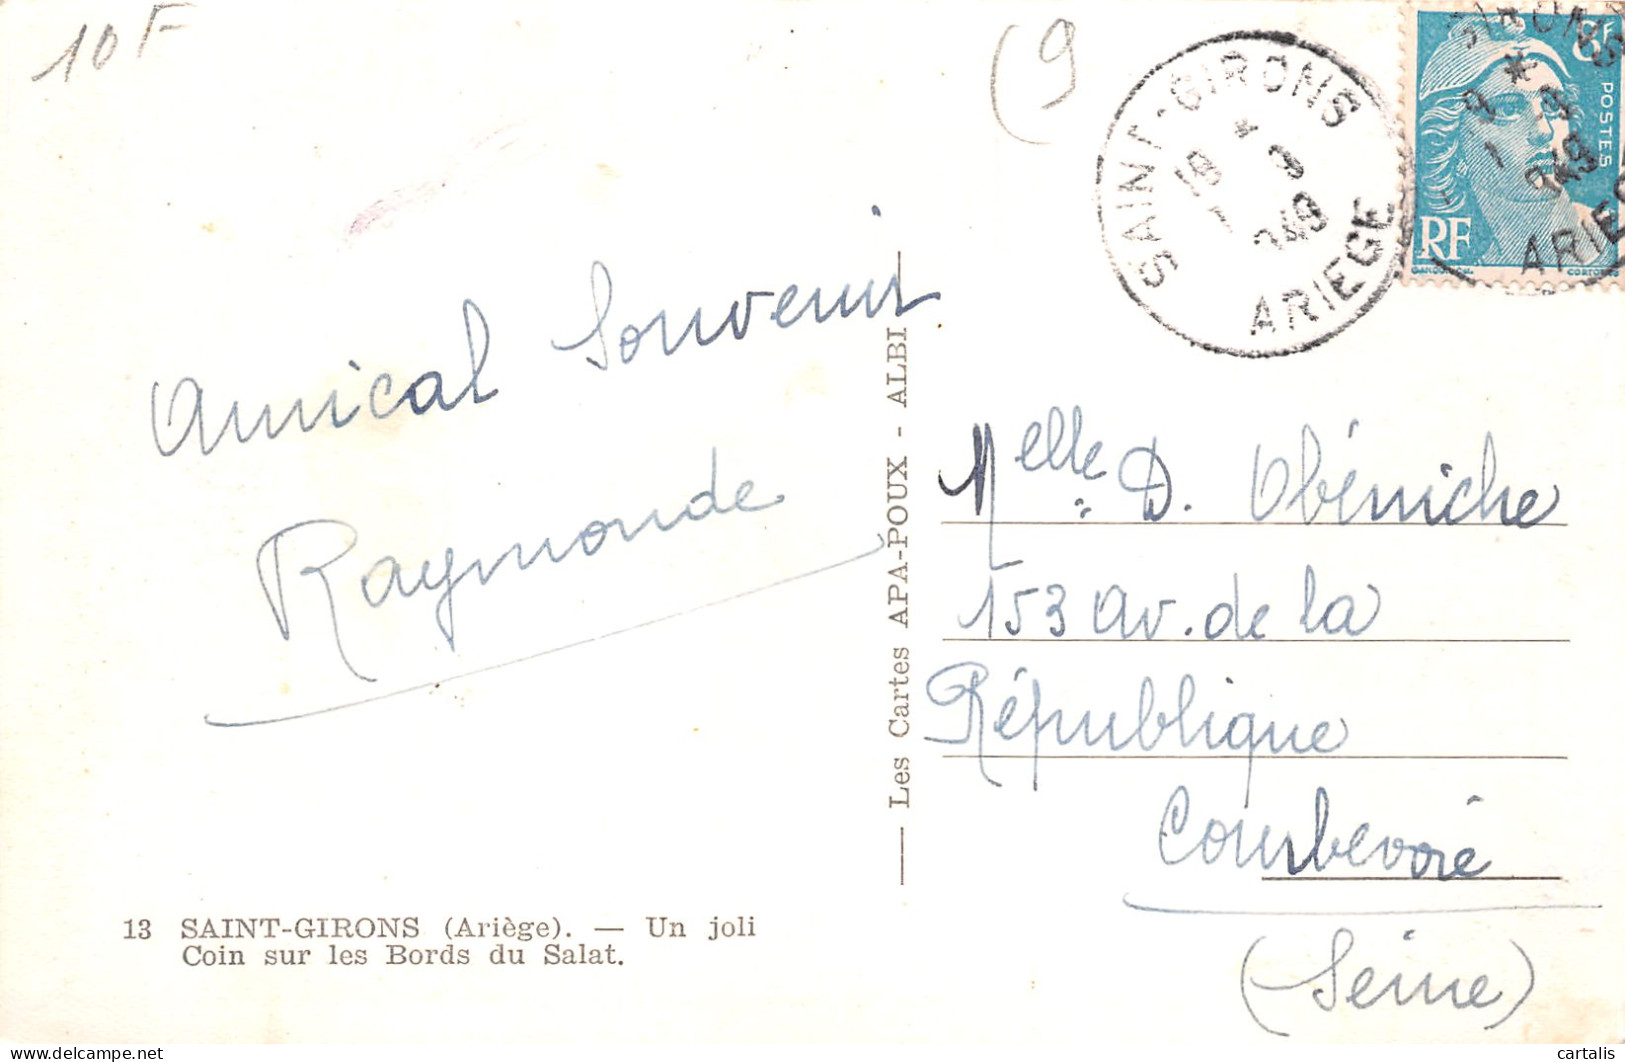 10F
(9
SAINT-GIRONS
18 * 9
1949
ARIEGE
8F
POSTES
RF
GANDON
CORTOT
ARIEGE
Amical Souvenir
Raymonde
Les Cartes APA-POUX - ALBI
Melle D. Obéniche
153 av. de la
République
Courbevoie
(Seine)
13 SAINT-GIRONS (Ariège). — Un joli
Coin sur les Bords du Salat.
cartalis